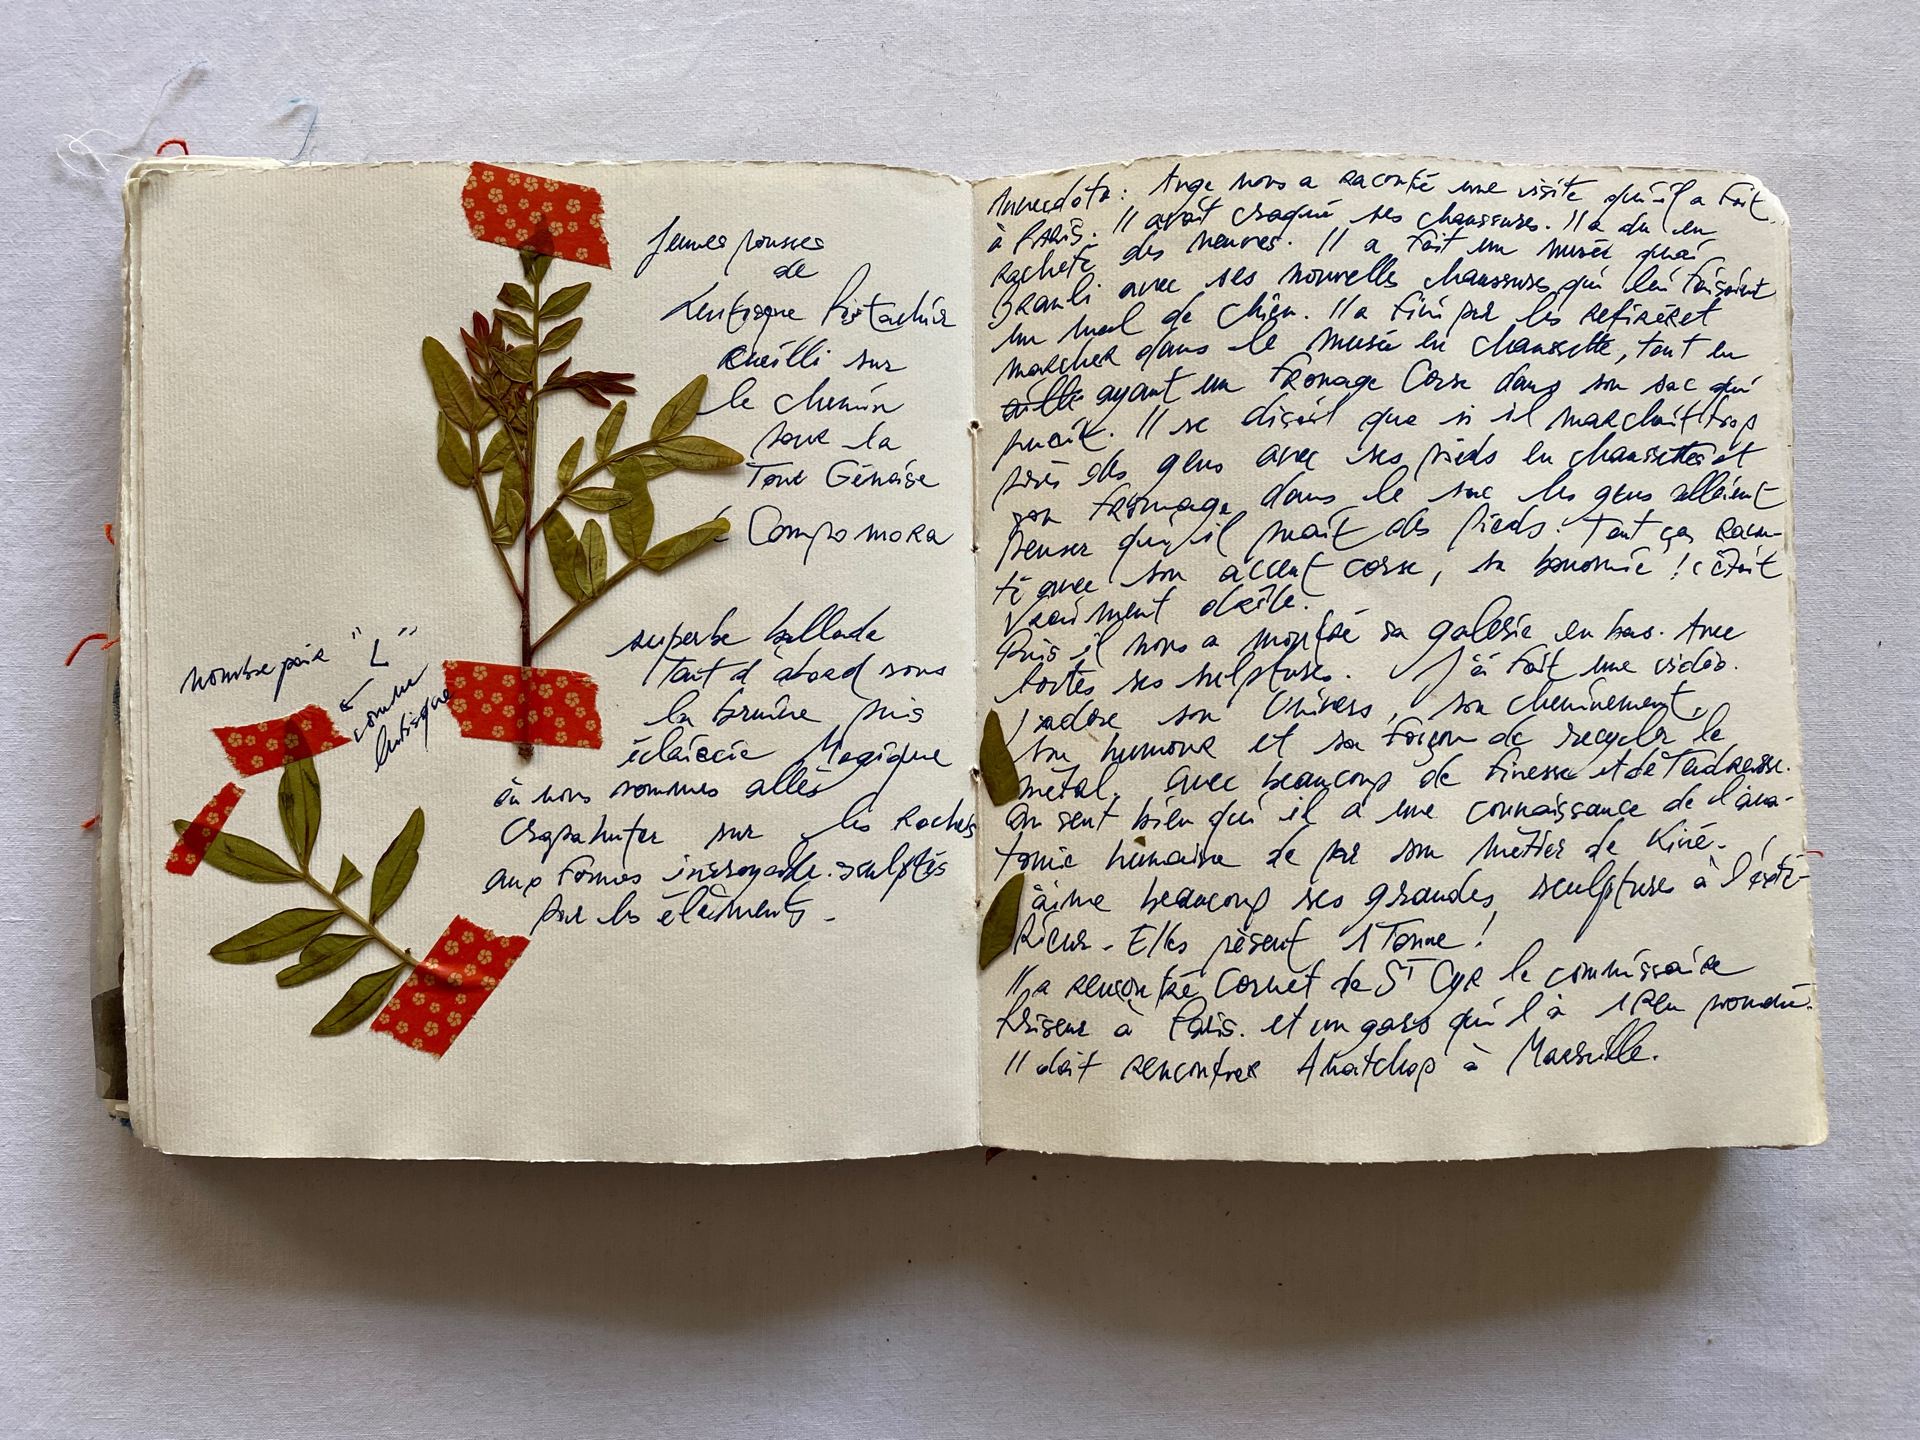 Jeunes pousses
de
Lentisque Pistachier
cueilli sur
le chemin
pour la
Tour Génoise
Campomora
nombre pair "L"
comme
lentisque
superbe ballade
Tout d'abord sous
la bruine puis
éclaircie Magique
où nous sommes allés
crapahuter sur les Rochers
aux formes incroyable. sculptés
par les éléments.
Anecdote : Ange nous a raconté une visite qu'il a fait
à PARIS. Il avait craqué ses chaussures. Il a du en
racheté des neuves. Il a fait un musée quai
Branli avec ses nouvelles chaussures qui lui faisaient
un mal de chien. Il a fini par les retirer et
marcher dans le musée en chaussette, tout en
ayant un fromage Corse dans son sac qui
puait. Il se disait que si il marchait trop
près des gens avec ses pieds en chaussettes et
son fromage dans le sac les gens allaient
penser qu'il puait des pieds. Tout ça racon-
té avec son accent corse, sa bonomie ! c'était
vraiment drôle.
Puis il nous a montré sa galerie en bas. Avec
toutes ses sculptures. J'ai fait une vidéo.
J'adore son Univers, son cheminement,
son humour et sa façon de recycler le
métal. avec beaucoup de finesse et de Tadresse.
On sent bien qu'il a une connaissance de l'ana-
tomie humaine de par son métier de Kiné.
J'aime beaucoup ses grandes sculptures à l'exté-
rieur. Elles pèsent 1 Tonne !
Il a rencontré Cornet de ST Cyr le commissaire
Priseur à Paris. et un gars qui l'a 1 peu
Il doit rencontrer à Marseille.